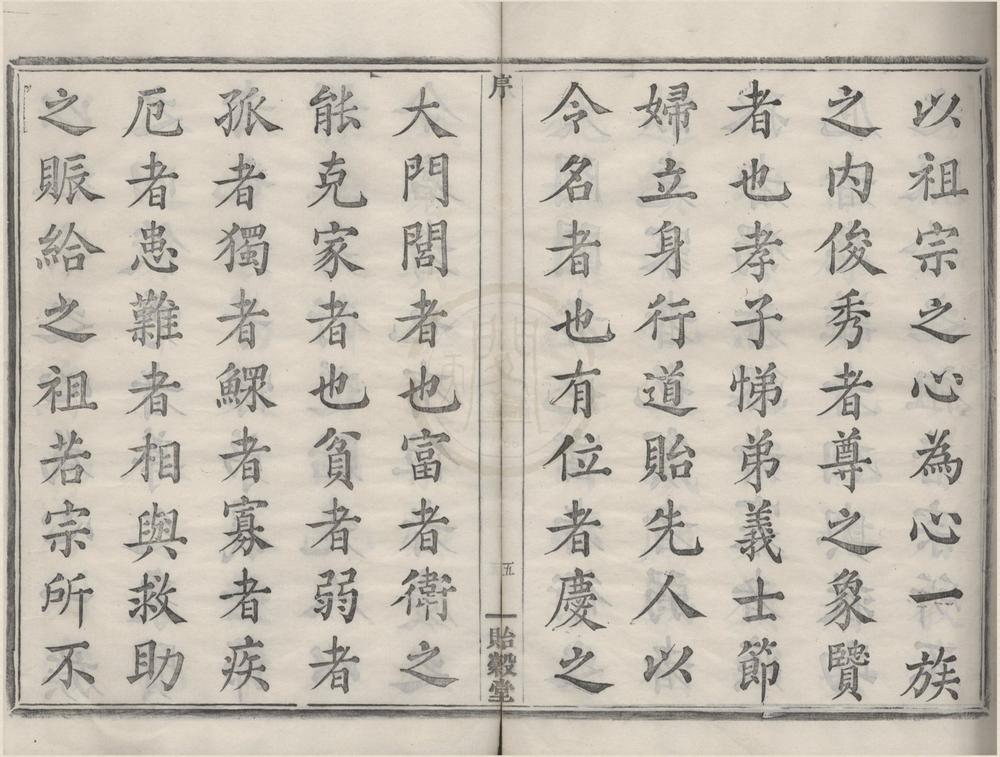 以祖宗之心為心一族
之内俊秀者尊之象賢
者也孝子悌弟義士節
婦立身行道貽先人以
令名者也有位者慶之
序
五
貽穀堂
大門閭者也富者衛之
能克家者也貧者弱者
孤者獨者鰥者寡者疾
厄者患難者相與救助
之賑給之祖若宗所不